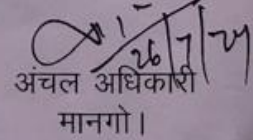 26/7/24
अंचल अधिकारी
मानगो।